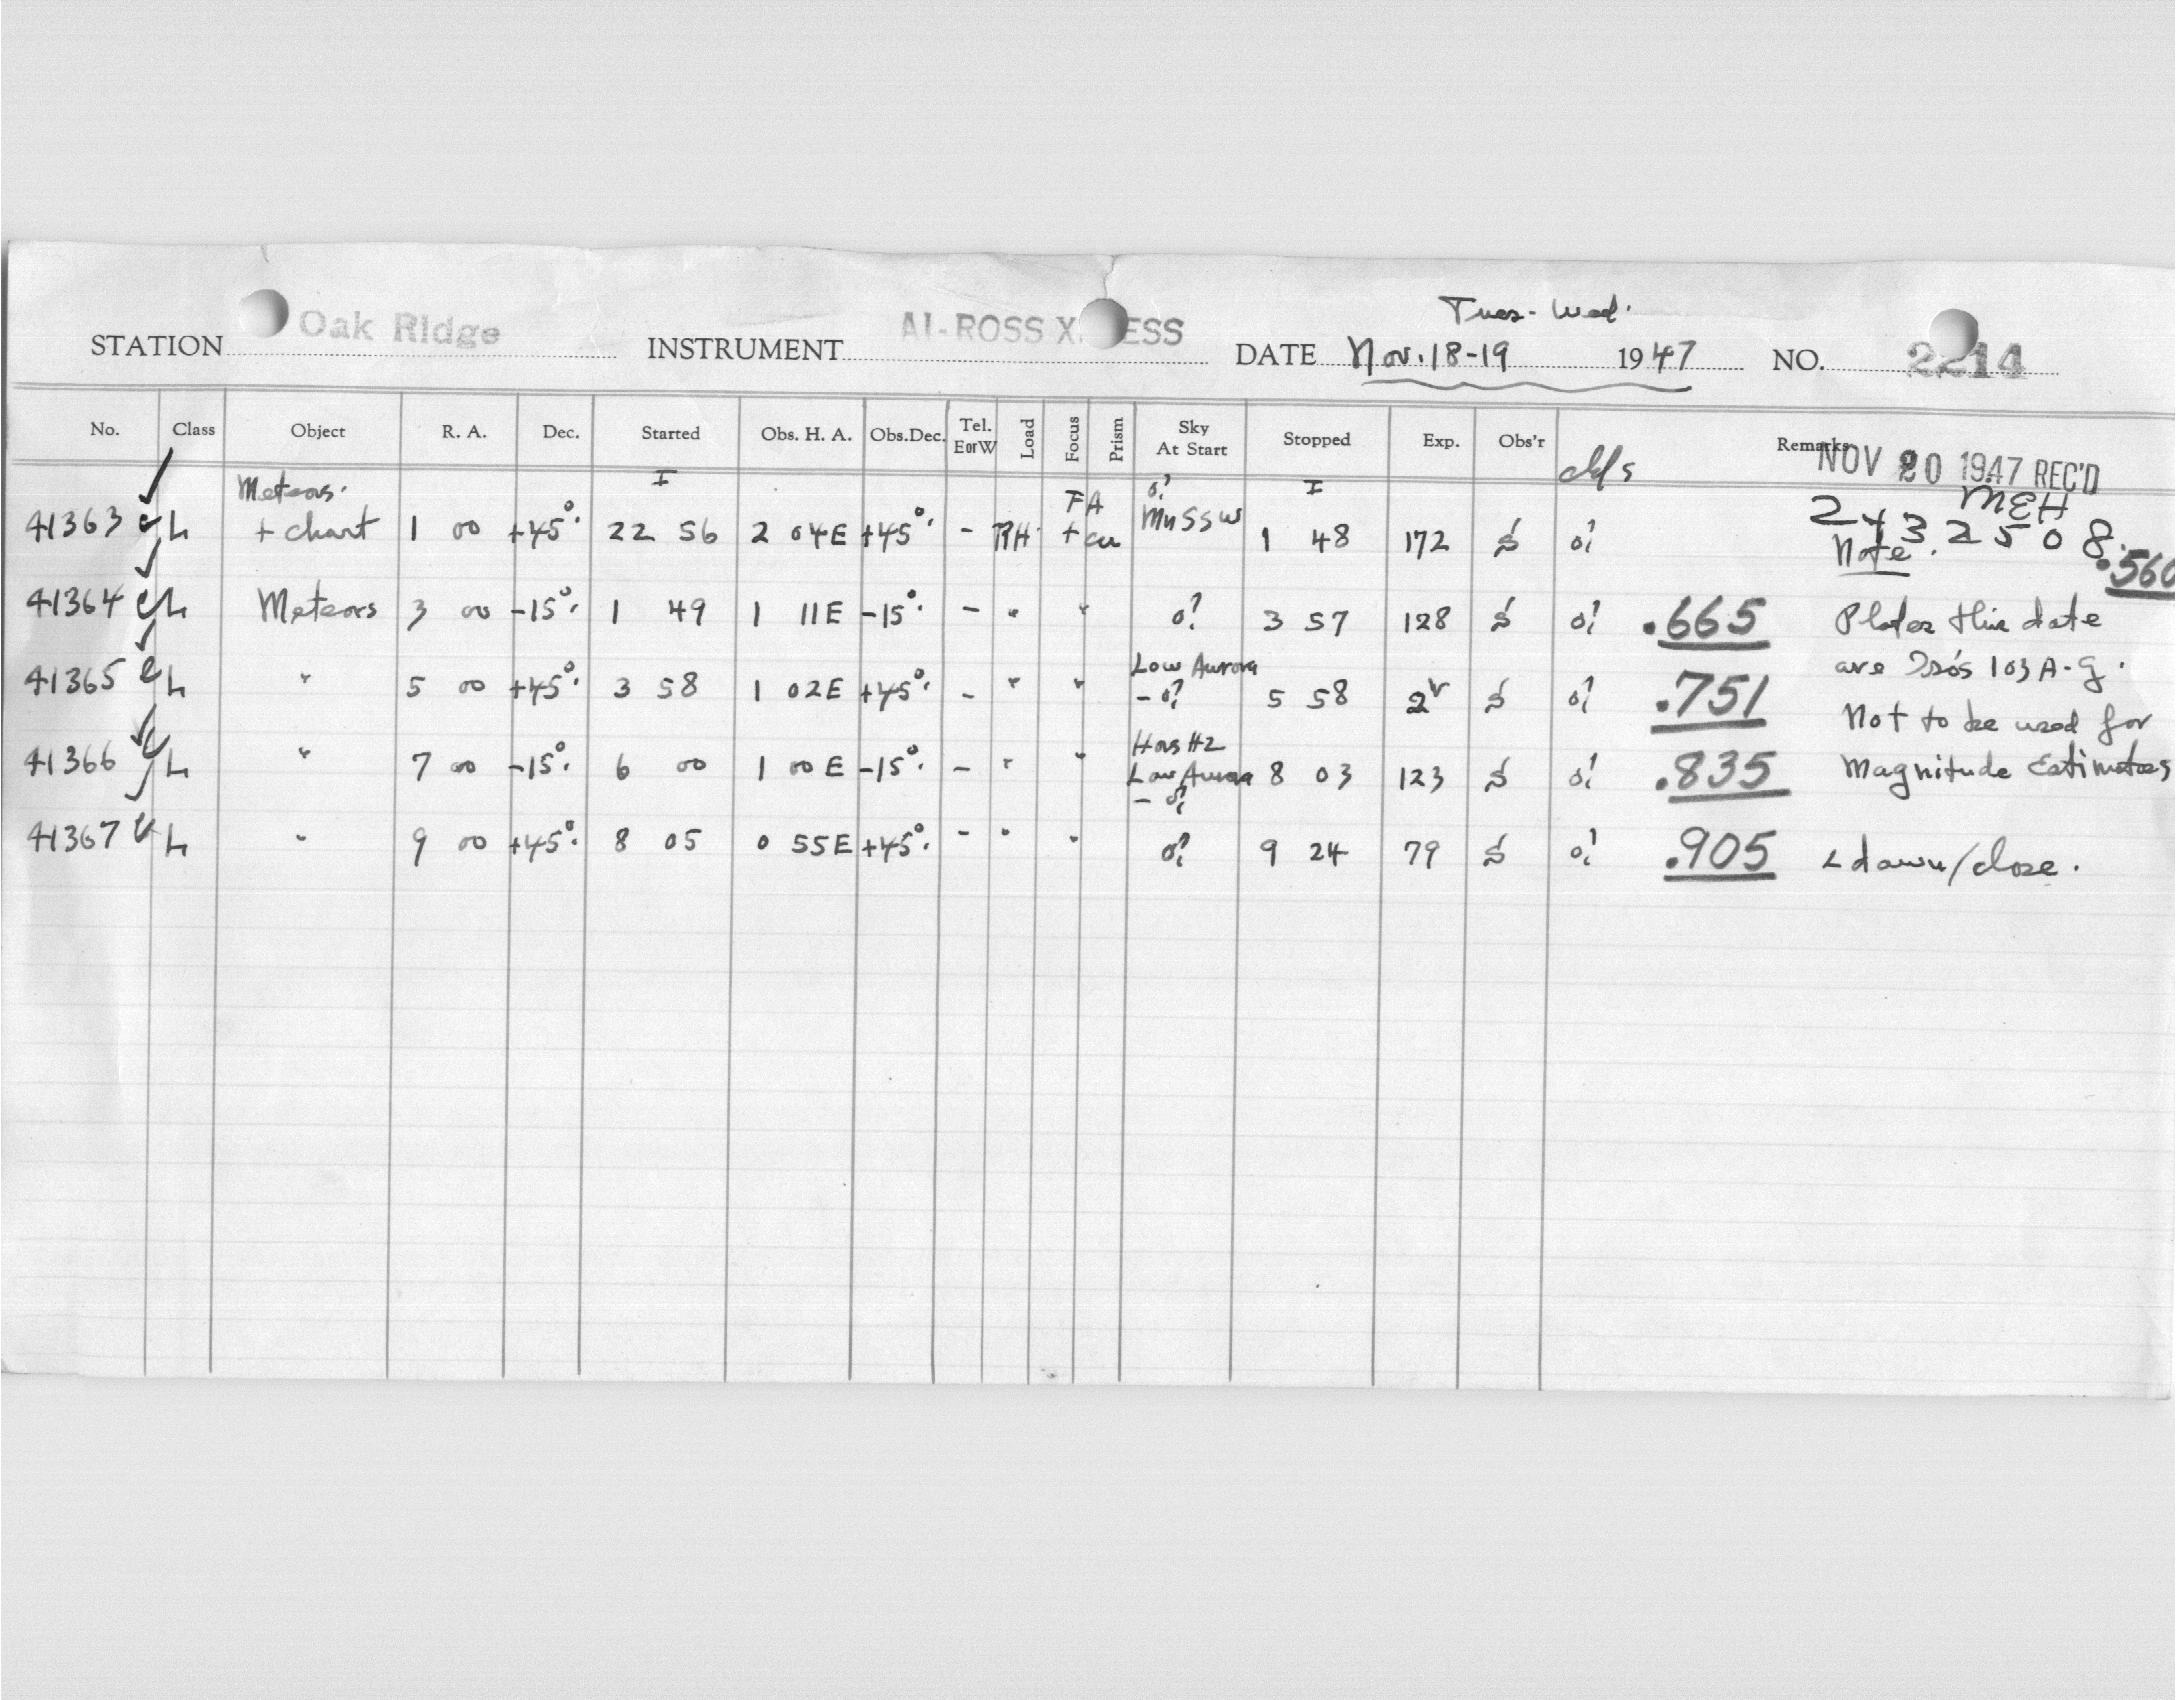 Tues - Wed.
STATION Oak Ridge INSTRUMENT AI-ROSS X ESS DATE Nov. 18-19 1947 NO. 2214
No. Class Object R. A. Dec. Started Obs. H. A. Obs.Dec. Tel. E or W Load Focus Prism Sky At Start Stopped Exp. Obs'r Remarks
NOV 20 1947 REC'D
MEH
Meteors. I FA I 2432508.
41363 L + chart 1 00 +45°. 22 56 2 04E +45°. - RH. + cu Mn SSW 1 48 172 Note. .560
41364 L Meteors 3 00 -15°. 1 49 1 11E -15°. - " " 3 57 128 .665 Plates this date
Low Aurora are 103 A-G.
41365 L " 5 00 +45°. 3 58 1 02E +45°. - " " 5 58 .751 Not to be used for
41366 L " 7 00 -15°. 6 00 1 00E -15°. - " " Low Aurora 8 03 123 .835 Magnitude Estimates
41367 L " 9 00 +45°. 8 05 0 55E +45°. - " " 9 24 79 .905 < dawn/close.